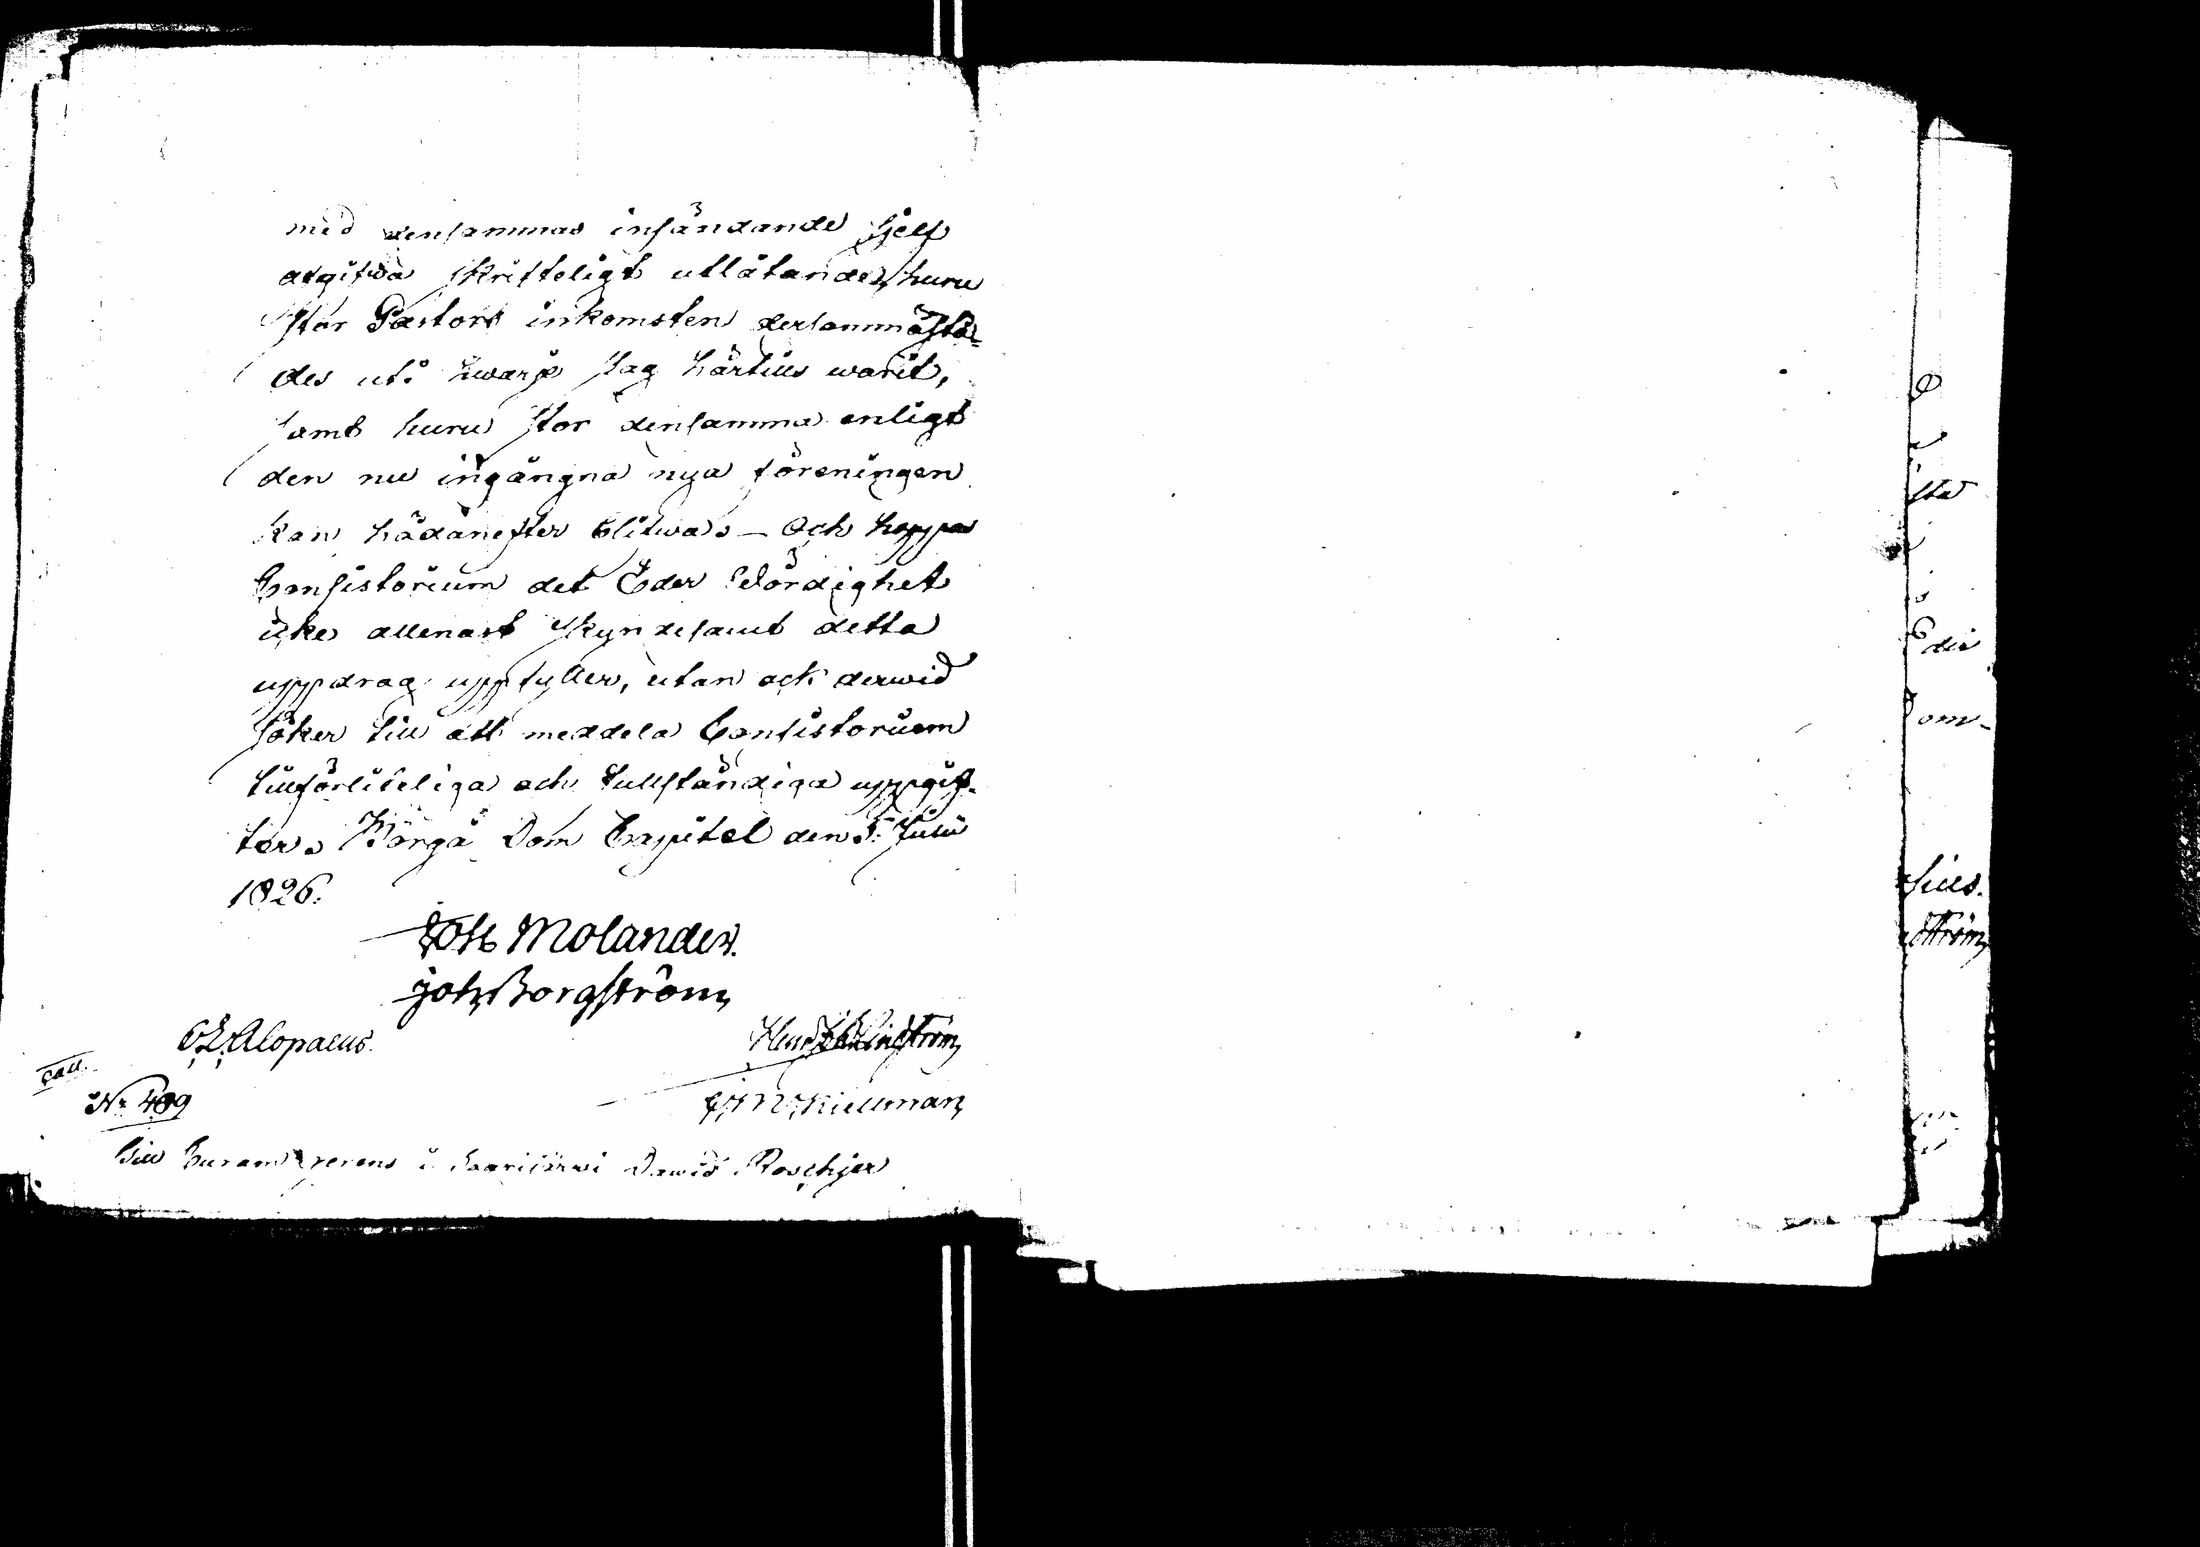 med densammas insändande sjelf
afgifwa skrifteligt utlåtande, huru
stor Pastors inkomsten dersammastä-
des uti hwarje slag härtills warit,
samt huru stor densamma enligt
den nu ingångna nya föreningen
kan hädanefter blifwa. - Och hoppas
Consistorium det Eder Wördighet
icke allenast skyndesamt detta
uppdrag uppfyller, utan ock derwid
söker till att meddela Consistorium
tillförliteliga och fullständiga uppgif-
ter. Borgå Dom Capitel den 5. Julii
1826.
Joh Molander.
Joh Borgström
Alopaeus.
Henr Lindström
Kiellman
No 409
Till i Saarijärvi Dawid Roschier
Eder
ström